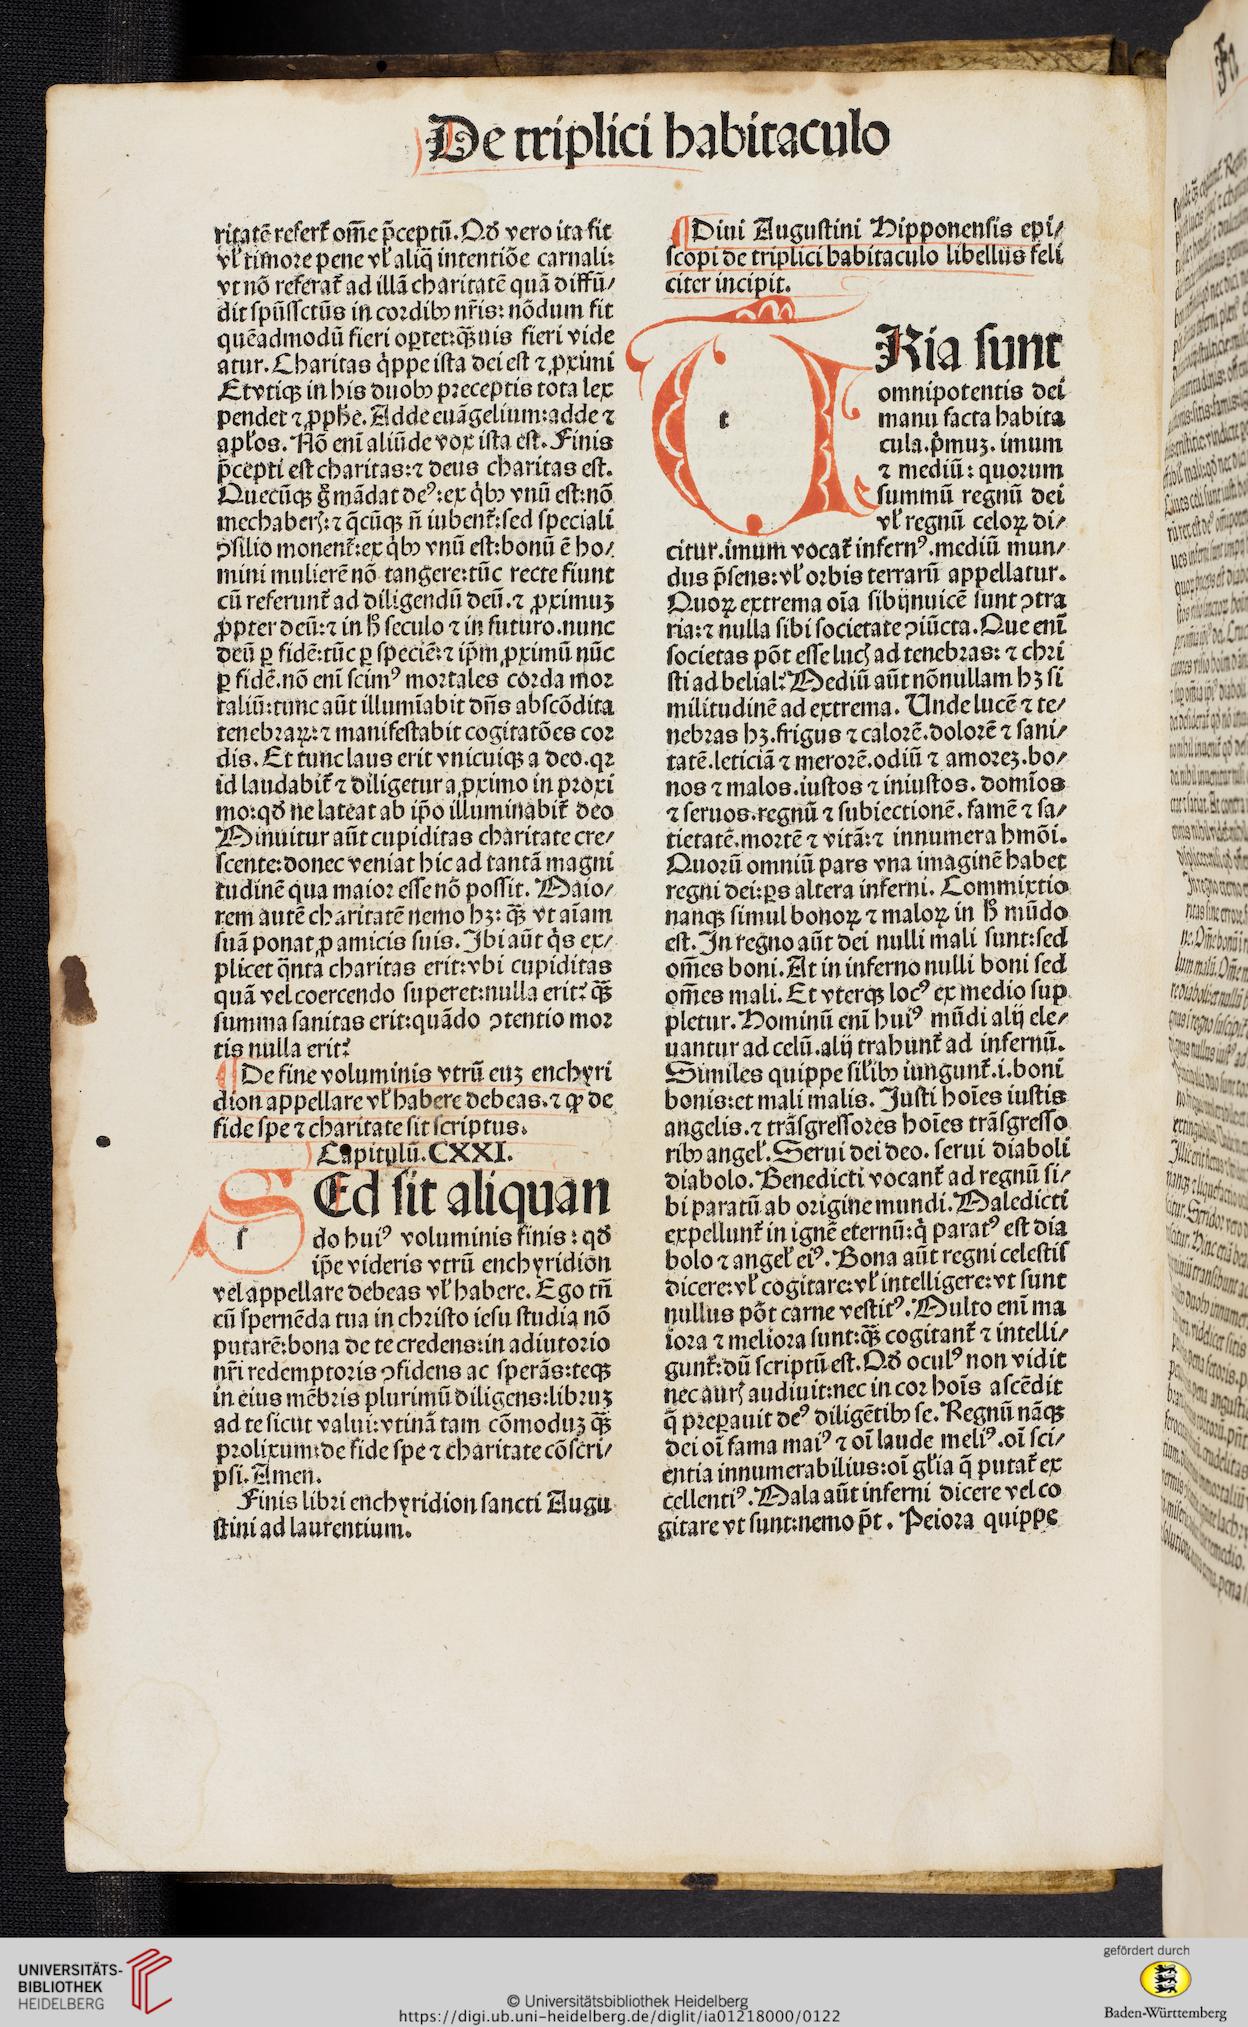 De triplici habitaculo
ritatē refert᷑ om̄e p̄ceptū. Qd̛ vero ita fit
vl̛ timore pene vl̛ aliq̄ intentiōe carnali:
vt nō referat᷑ ad illā charitatē quā diffū/
dit spūssctūs in cordibꝰ nr̄is: nōdum fit
quēadmodū fieri oꝑtet: qꝫ̄uis fieri vide
atur. Charitas q̍ppe ista dei est ⁊ ꝓximi
Etvtiqꝫ in his duobꝰ preceptis tota lex
pendet ⁊ ꝓphe̅. Adde euāgelium: adde ⁊
apl̛os. Nō eni̅ aliūde vox ista est. Finis
p̄cepti est charitas: ⁊ deus charitas est.
Quecūqꝫ g̊ mādat deꝰ: ex q̍bꝰ vnū est: nō
mechaberꝭ: ⁊ q̄cūqꝫ n̄ iubent᷑: sed speciali
ꝯsilio monent᷑: ex q̍bꝰ vnū est: bonū ē ho/
mini mulierē nō tangere: tūc recte fiunt
cū referunt᷑ ad diligendū deū. ⁊ ꝓximuꝫ
ꝓpter deū: ⁊ in h̛ seculo ⁊ in futuro. nunc
deū ꝑ fidē: tūc ꝑ speciē: ⁊ ip̄m ꝓximū nūc
ꝑ fidē. nō eni̅ scimꝰ mortales corda mor
taliū: tunc aūt illumi̅abit dn̄s abscōdita
tenebraꝝ: ⁊ manifestabit cogitatōes cor
dis. Et tunc laus erit vnicuiqꝫ a deo. qꝛ
id laudabit᷑ ⁊ diligetur a ꝓximo in proxi
mo: qd̛ ne lateat ab ip̄o illuminabit᷑ deo
Minuitur aūt cupiditas charitate cre/
scente: donec veniat hic ad tantā magni
tudinē qua maior esse nō possit. Maio/
rem autē charitatē nemo hꝫ: qꝫ̄ vt ai̅am
suā ponat ꝓ amicis suis. Ibi aūt q̍s ex/
plicet q̄nta charitas erit: vbi cupiditas
quā vel coercendo superet: nulla erit? qꝫ̄
summa sanitas erit: quādo ꝯtentio mor
tis nulla erit?
¶ De fine voluminis vtrū euꝫ enchyri
dion appellare vl̛ habere debeas. ⁊ ꝙ de
fide spe ⁊ charitate sit scriptus.
Capitulū. CXXI.
SEd sit aliquan
do huiꝰ voluminis finis: qd̛
ip̄e videris vtrū enchyridion
vel appellare debeas vl̛ habere. Ego tn̄
cū spernēda tua in christo iesu studia nō
putarē: bona de te credens: in adiutorio
nr̄i redemptoris ꝯfidens ac sperās: teqꝫ
in eius mēbris plurimū diligens: libruꝫ
ad te sicut valui: vtinā tam cōmoduꝫ qꝫ̄
prolixum: de fide spe ⁊ charitate cōscri/
psi. Amen.
Finis libri enchyridion sancti Augu
stini ad laurentium.
¶ Diui Augustini Hipponensis epi/
scopi de triplici habitaculo libellus feli
citer incipit.
TRia sunt
omnipotentis dei
manu facta habita
cula. p̍muꝫ. imum
⁊ mediū: quorum
summū regnū dei
vl̛ regnū celoꝝ di/
citur. imum vocat᷑ infernꝰ. mediū mun/
dus p̄sens: vl̛ orbis terrarū appellatur.
Quoꝝ extrema oi̅a sibijnuicē sunt ꝯtra
ria: ⁊ nulla sibi societate ꝯiūcta. Que eni̅
societas pōt esse lucꝭ ad tenebras: ⁊ chri
sti ad belial? Mediū aūt nōnullam hꝫ si
militudinē ad extrema. Unde lucē ⁊ te/
nebras hꝫ. frigus ⁊ calorē. dolorē ⁊ sani/
tatē. leticiā ⁊ merorē. odiū ⁊ amoreꝫ. bo/
nos ⁊ malos. iustos ⁊ iniustos. domi̅os
⁊ seruos. regnū ⁊ subiectionē. famē ⁊ sa/
tietatē. mortē ⁊ vitā: ⁊ innumera hmōi.
Quorū omniū pars vna imaginē habet
regni dei: ꝑs altera inferni. Commixtio
nanqꝫ simul bonoꝝ ⁊ maloꝝ in h̛ mūdo
est. In regno aūt dei nulli mali sunt: sed
om̄es boni. At in inferno nulli boni sed
om̄es mali. Et vterqꝫ locꝰ ex medio sup
pletur. Hominū eni̅ huiꝰ mūdi alij ele/
uantur ad celū. alij trahunt᷑ ad infernū.
Similes quippe sil̛ibꝰ iungunt᷑. i. boni
bonis: et mali malis. Iusti hoi̅es iustis
angelis. ⁊ trāsgressores hoi̅es trāsgresso
ribꝰ angel̛. Serui dei deo. serui diaboli
diabolo. Benedicti vocant᷑ ad regnū si/
bi paratū ab origine mundi. Maledicti
expellunt᷑ in ignē eternū: q̍ paratꝰ est dia
bolo ⁊ angel̛ eiꝰ. Bona aūt regni celestis
dicere: vl̛ cogitare: vl̛ intelligere: vt sunt
nullus pōt carne vestitꝰ. Multo eni̅ ma
iora ⁊ meliora sunt: qꝫ̄ cogitant᷑ ⁊ intelli/
gunt᷑: dū scriptū est. Qd̛ oculꝰ non vidit
nec aurꝭ audiuit: nec in cor hoi̅s ascēdit
q̄ preꝑauit deꝰ diligētibꝰ se. Regnū nāqꝫ
dei oi̅ fama maiꝰ ⁊ oi̅ laude meliꝰ. oi̅ sci/
entia innumerabilius: oi̅ gl̛ia q̄ putat᷑ ex
cellentiꝰ. Mala aūt inferni dicere vel co
gitare vt sunt: nemo pōt. Peiora quippe
UNIVERSITÄTS-
BIBLIOTHEK
HEIDELBERG
© Universitätsbibliothek Heidelberg
https://digi.ub.uni-heidelberg.de/diglit/ia01218000/0122
gefördert durch
Baden-Württemberg